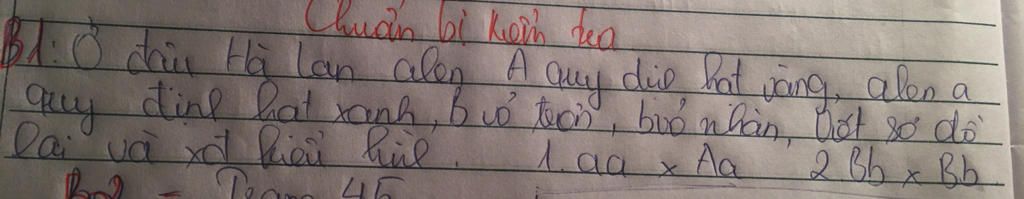 Chuẩn bị kiểm tra
B1: Ở đậu Hà Lan alen A quy định hạt vàng, alen a
quy định hạt xanh, B vỏ trơn, b vỏ nhăn, Viết sơ đồ
lai và xđ kiểu hình. 1. aa x Aa 2 Bb x Bb